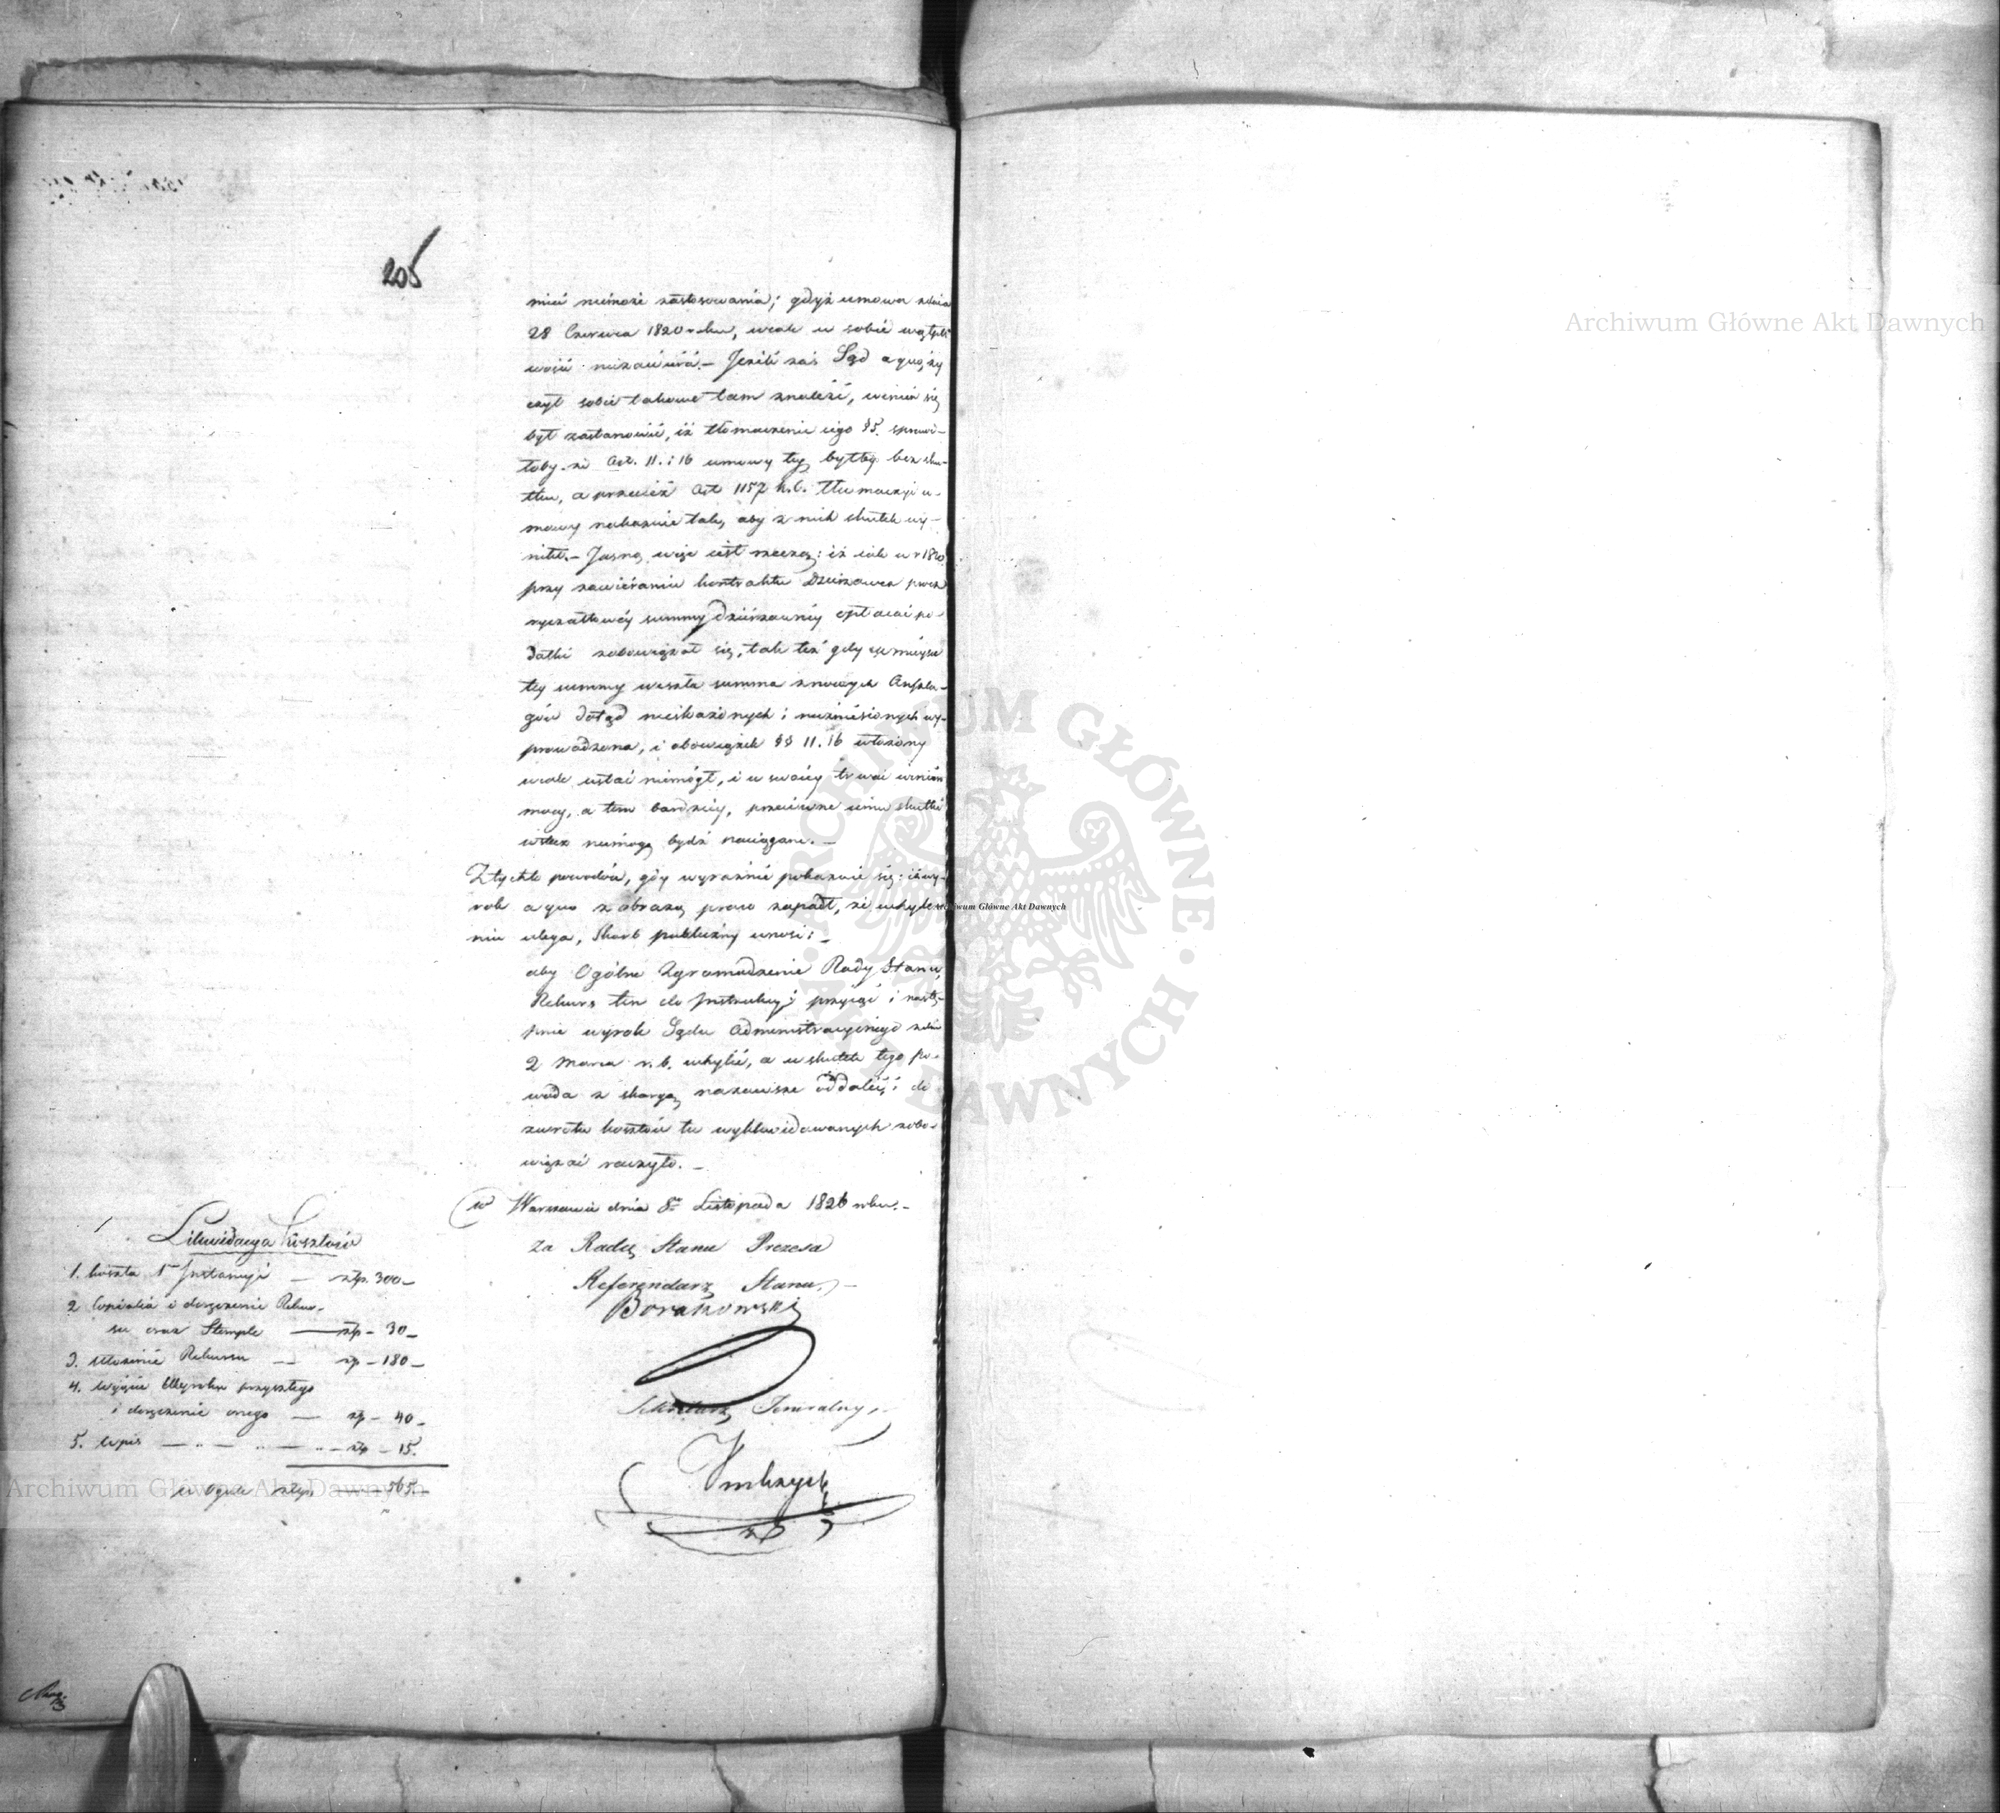 205
mieć niemoże zastosowania; gdyż umowa z dnia
28 Czerwca 1820 roku, wcale w sobie wątpli-
wości niezawiéra.— Jeżeli zaś Sąd a quo, ży
czył sobie takowe tam znaleść, winien się
był zastanowić, iż tłómaczenie iego § 5. sprawi-
łoby że Art. 11. i 16 umowy tey byłby bez sku-
tku, a przecież Art 1157 K.C. tłumaczyć u-
mowy nakazuie tak, aby z nich skutek wy-
nikł.— Jasną więc iest rzeczą: iż iak w r 1820
przy zawiéraniu kontraktu Dzierżawca prócz
ryczałtowéy summy dzierżawnéy opłacać po-
datki zobowiązał się, tak też gdy w mieysce
tey summy weszła summa z nowych Anszla-
gów dotąd nieskażonych i niezniesionych wy-
prowadzona, i obowiązek §§ 11. 16 włożony
wcale ustać niemógł, i w swoiéy trwać winien
mocy, a tem bardziéy, przeciwne iemu skutki
wstecz niemogą bydź naciągane.—
Z tych to powodów, gdy wyraźnie pokazuie się: iż wy-
rok a quo z obrazą praw zapadł, że uchyle-
niu ulega, Skarb publiczny wnosi:—
aby Ogólne Zgromadzenie Rady Stanu,
Rekurs ten do Instrukcyi przyiąć i nastę-
pnie wyrok Sądu Administracyinego z dnia
2 Marca r. b. uchylić, a w skutek tego po-
woda z skargą na zawsze oddalić i do
zwrotu kosztów tu wylikwidowanych zobo-
wiązać raczyło.—
w Warszawie dnia 8º Listopada 1826 roku.—
Za Radcę Stanu Prezesa
Referendarz Stanu
Borakowski
Sekretarz Jeneralny
Likwidacya Kosztów
1. koszta 1éy Instancyi — złp. 300—
2 Copialia i doręczenie Rekur-
su oraz Stemple — złp — 30—
3. ułożenie Rekursu — złp — 180—
4. wyięcie Wyroku przyszłego
i doręczenie onego — złp — 40—
5. wpis — złp — 15.
w Ogule złp. 565.—
Archiwum Główne Akt Dawnych
Archiwum Główne Akt Dawnych
Archiwum Główne Akt Dawnych
ARCHIWUM GŁÓWNE AKT DAWNYCH